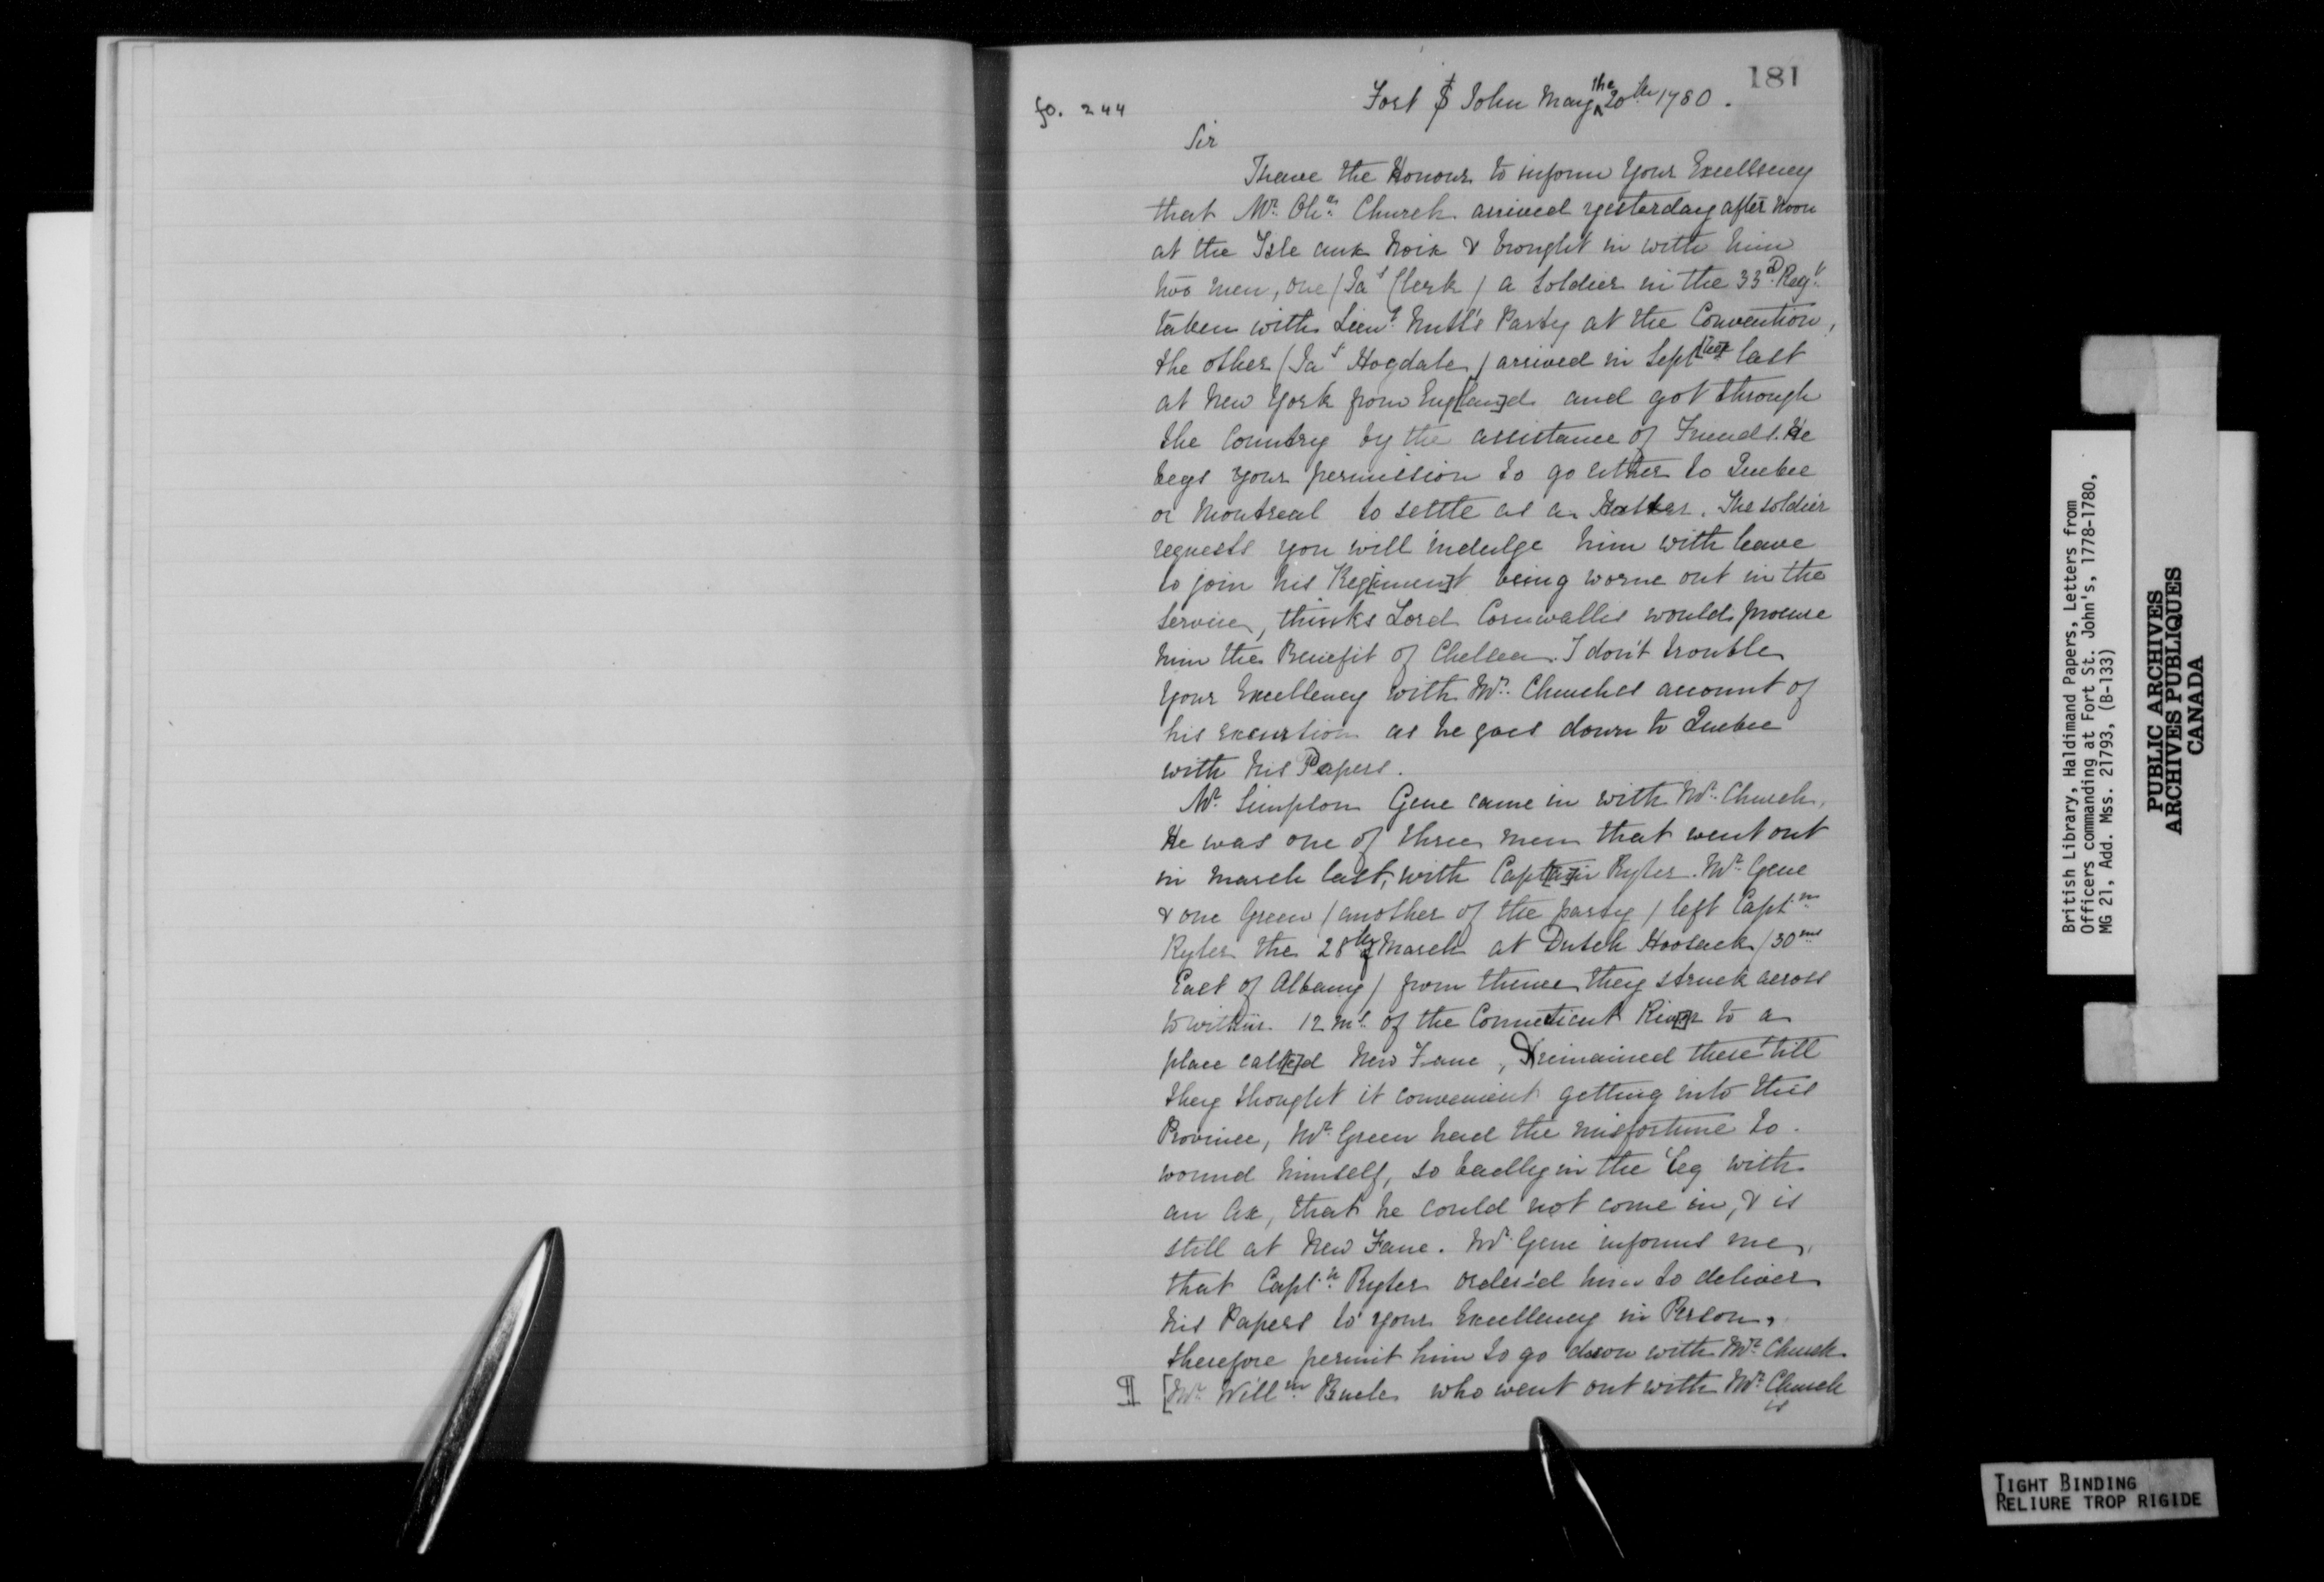 181
fo. 244
Fort St John May the 20th 1780.
Sir
I have the Honour to inform Your Excellency
that Mr. Oli. Church arrived yesterday after noon
at the Isle aux Noix & brought in with him
two men, one (Jas Clerk) a Soldier in the 33d. Regt.
taken with Lieut. Nutt's Party at the Convention,
the other (Jas Hogdale) arrived in Sept[ber] last
at New York from Eng[lan]d and got through
the Country by the assistance of Friends. He
begs your permission to go either to Quebec
or Montreal to settle as a Hatter. The soldier
requests you will indulge him with leave
to join his Reg[imen]t being worne out in the
Service, thinks Lord Cornwallis would procure
him the Benefit of Chelsea. I don't trouble
Your Excellency with Mr. Churches account of
his excurtion as he goes down to Quebec
with his Papers.
Mr. Simpson Gene came in with Mr. Church.
He was one of three men that went out
in March last, with Capt[ai]n Ryter. Mr. Gene
& one Green (another of the party) left Capt.n
Ryter the 28th of March at Dutch Hoosack (30 ms
East of Albany) from thence they struck across
to within 12 ms. of the Connecticut Riv[e]r to a
place call[e]d New Fane, & remained there till
they thought it convenient getting into this
Province, Mr. Green had the misfortune to
wound himself, so badly in the leg with
an Ax, that he could not come in, & is
still at New Fane. Mr. Gene informs me,
that Capt.n Ryter order'd him to deliver
his Papers to your Excellency in Person,
therefore permit him to go down with Mr. Church
¶ [Mr. Willm. Buele who went out with Mr. Church
is
British Library, Haldimand Papers, Letters from
Officers commanding at Fort St. John's, 1778-1780,
MG 21, Add. Mss. 21793, (B-133)
PUBLIC ARCHIVES
ARCHIVES PUBLIQUES
CANADA
TIGHT BINDING
RELIURE TROP RIGIDE